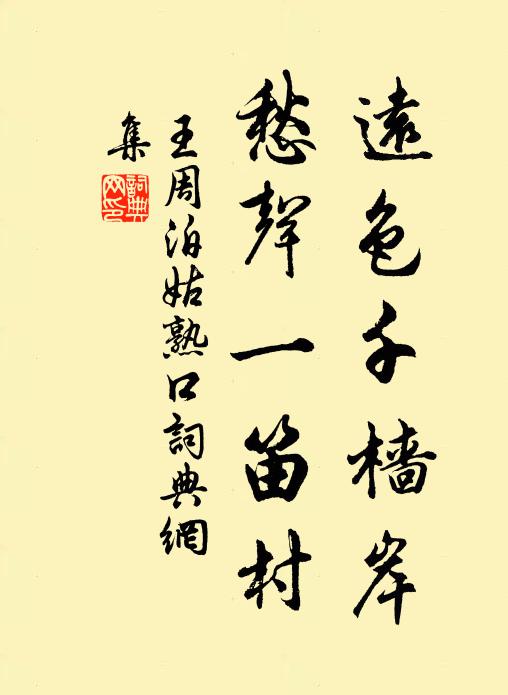 遠色千檣岸
愁聲一笛村
王周泊姑熟口詞典網
集
詞典網印